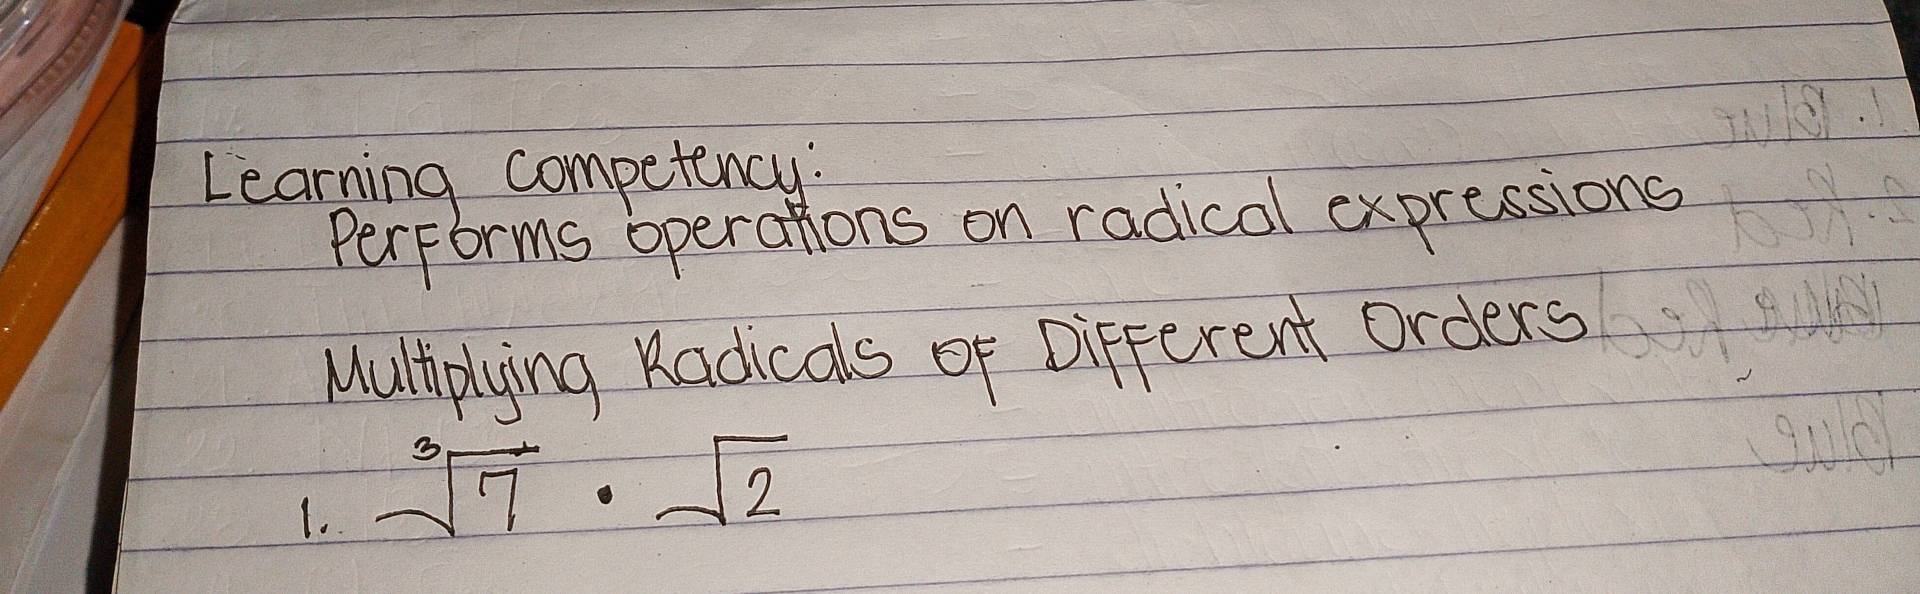 Learning Competency:
Performs operations on radical expressions
Multiplying Radicals of Different Orders
1. ³√7 · √2
1. Blue
2. Red
Blue Red
Blue